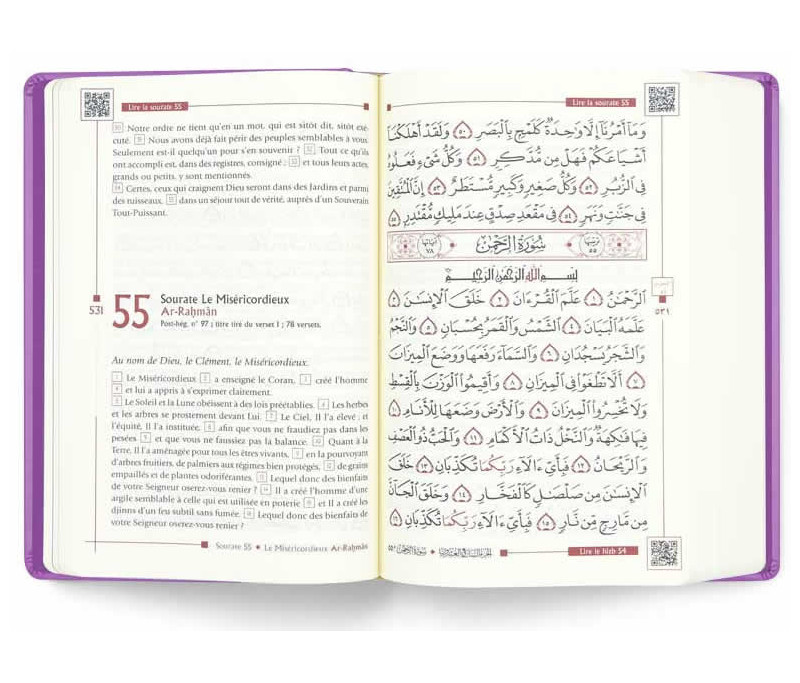 Lire la sourate 55
50 Notre ordre ne tient qu'en un mot, qui est sitôt dit, sitôt exé-
cuté. 51 Nous avons déjà fait périr des peuples semblables à vous.
Seulement est-il quelqu'un pour s'en souvenir ? 52 Tout ce qu'ils
ont accompli est, dans des registres, consigné ; 53 et tous leurs actes,
grands ou petits, y sont mentionnés.
54 Certes, ceux qui craignent Dieu seront dans des Jardins et parmi
des ruisseaux, 55 dans un séjour tout de vérité, auprès d'un Souverain
Tout-Puissant.
531
55
Sourate Le Miséricordieux
Ar-Raḥmân
Post-hég. n° 97 ; titre tiré du verset 1 ; 78 versets.
Au nom de Dieu, le Clément, le Miséricordieux.
1 Le Miséricordieux 2 a enseigné le Coran, 3 créé l'homme
4 et lui a appris à s'exprimer clairement.
5 Le Soleil et la Lune obéissent à des lois préétablies. 6 Les herbes
et les arbres se prosternent devant Lui. 7 Le Ciel, Il l'a élevé ; et
l'équité, Il l'a instituée, 8 afin que vous ne fraudiez pas dans les
pesées 9 et que vous ne faussiez pas la balance. 10 Quant à la
Terre, Il l'a aménagée pour tous les êtres vivants, 11 en la pourvoyant
d'arbres fruitiers, de palmiers aux régimes bien protégés, 12 de grains
empaillés et de plantes odoriférantes. 13 Lequel donc des bienfaits
de votre Seigneur oserez-vous renier ? 14 Il a créé l'homme d'une
argile semblable à celle qui est utilisée en poterie 15 et Il a créé les
djinns d'un feu subtil sans fumée. 16 Lequel donc des bienfaits de
votre Seigneur oserez-vous renier ?
Sourate 55 ◆ Le Miséricordieux Ar-Raḥmân
Lire la sourate 55
وَمَآ أَمْرُنَآ إِلَّا وَٰحِدَةٌ كَلَمْحٍۭ بِٱلْبَصَرِ ٥٠ وَلَقَدْ أَهْلَكْنَآ
أَشْيَاعَكُمْ فَهَلْ مِن مُّدَّكِرٍ ٥١ وَكُلُّ شَىْءٍ فَعَلُوهُ
فِى ٱلزُّبُرِ ٥٢ وَكُلُّ صَغِيرٍ وَكَبِيرٍ مُّسْتَطَرٌ ٥٣ إِنَّ ٱلْمُتَّقِينَ
فِى جَنَّٰتٍ وَنَهَرٍ ٥٤ فِى مَقْعَدِ صِدْقٍ عِندَ مَلِيكٍ مُّقْتَدِرٍۭ ٥٥
ترتيبها ٥٥ سُورَةُ الرَّحْمَٰن آياتها ٧٨
بِسْمِ ٱللَّهِ ٱلرَّحْمَٰنِ ٱلرَّحِيمِ
ٱلرَّحْمَٰنُ ١ عَلَّمَ ٱلْقُرْءَانَ ٢ خَلَقَ ٱلْإِنسَٰنَ ٣
عَلَّمَهُ ٱلْبَيَانَ ٤ ٱلشَّمْسُ وَٱلْقَمَرُ بِحُسْبَانٍ ٥ وَٱلنَّجْمُ
وَٱلشَّجَرُ يَسْجُدَانِ ٦ وَٱلسَّمَآءَ رَفَعَهَا وَوَضَعَ ٱلْمِيزَانَ
٧ أَلَّا تَطْغَوْا۟ فِى ٱلْمِيزَانِ ٨ وَأَقِيمُوا۟ ٱلْوَزْنَ بِٱلْقِسْطِ
وَلَا تُخْسِرُوا۟ ٱلْمِيزَانَ ٩ وَٱلْأَرْضَ وَضَعَهَا لِلْأَنَامِ ١٠
فِيهَا فَٰكِهَةٌ وَٱلنَّخْلُ ذَاتُ ٱلْأَكْمَامِ ١١ وَٱلْحَبُّ ذُو ٱلْعَصْفِ
وَٱلرَّيْحَانُ ١٢ فَبِأَىِّ ءَالَآءِ رَبِّكُمَا تُكَذِّبَانِ ١٣ خَلَقَ
ٱلْإِنسَٰنَ مِن صَلْصَٰلٍ كَٱلْفَخَّارِ ١٤ وَخَلَقَ ٱلْجَآنَّ
مِن مَّارِجٍ مِّن نَّارٍ ١٥ فَبِأَىِّ ءَالَآءِ رَبِّكُمَا تُكَذِّبَانِ ١٦
٥٣١
Lire le hizb 54